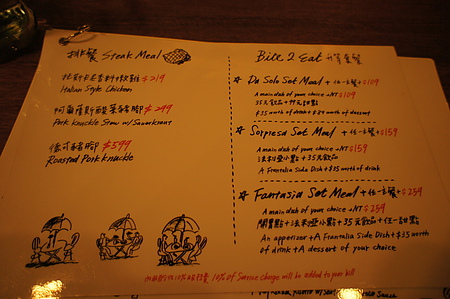 排餐 Steak Meal
$219
Italian Style Chicken
阿爾薩斯酸菜豬腳 $299
Pork Knuckle Stew w/ Sauerkraut
德式豬腳 $599
Roasted Pork Knuckle
Bite 2 Eat 套餐
Da Solo Set Meal +任一主餐+$109
A main dish of your choice +NT $109
35元飲品+甜點
$35 worth of drink+$ worth of dessert
Sorpresa Set Meal +任一主餐+$159
A main dish of your choice +NT $159
小點+35元飲品
A Frantalia Side Dish+$35 worth of drink
Fantasia Set Meal +任一主餐+$259
A main dish of your choice +NT $259
開胃點+法利亞小點+35元飲品+任一甜點
An appetizer+A Frantalia Side Dish+$35 worth
of drink+A dessert of your choice
10% of Service charge will be added to your bill